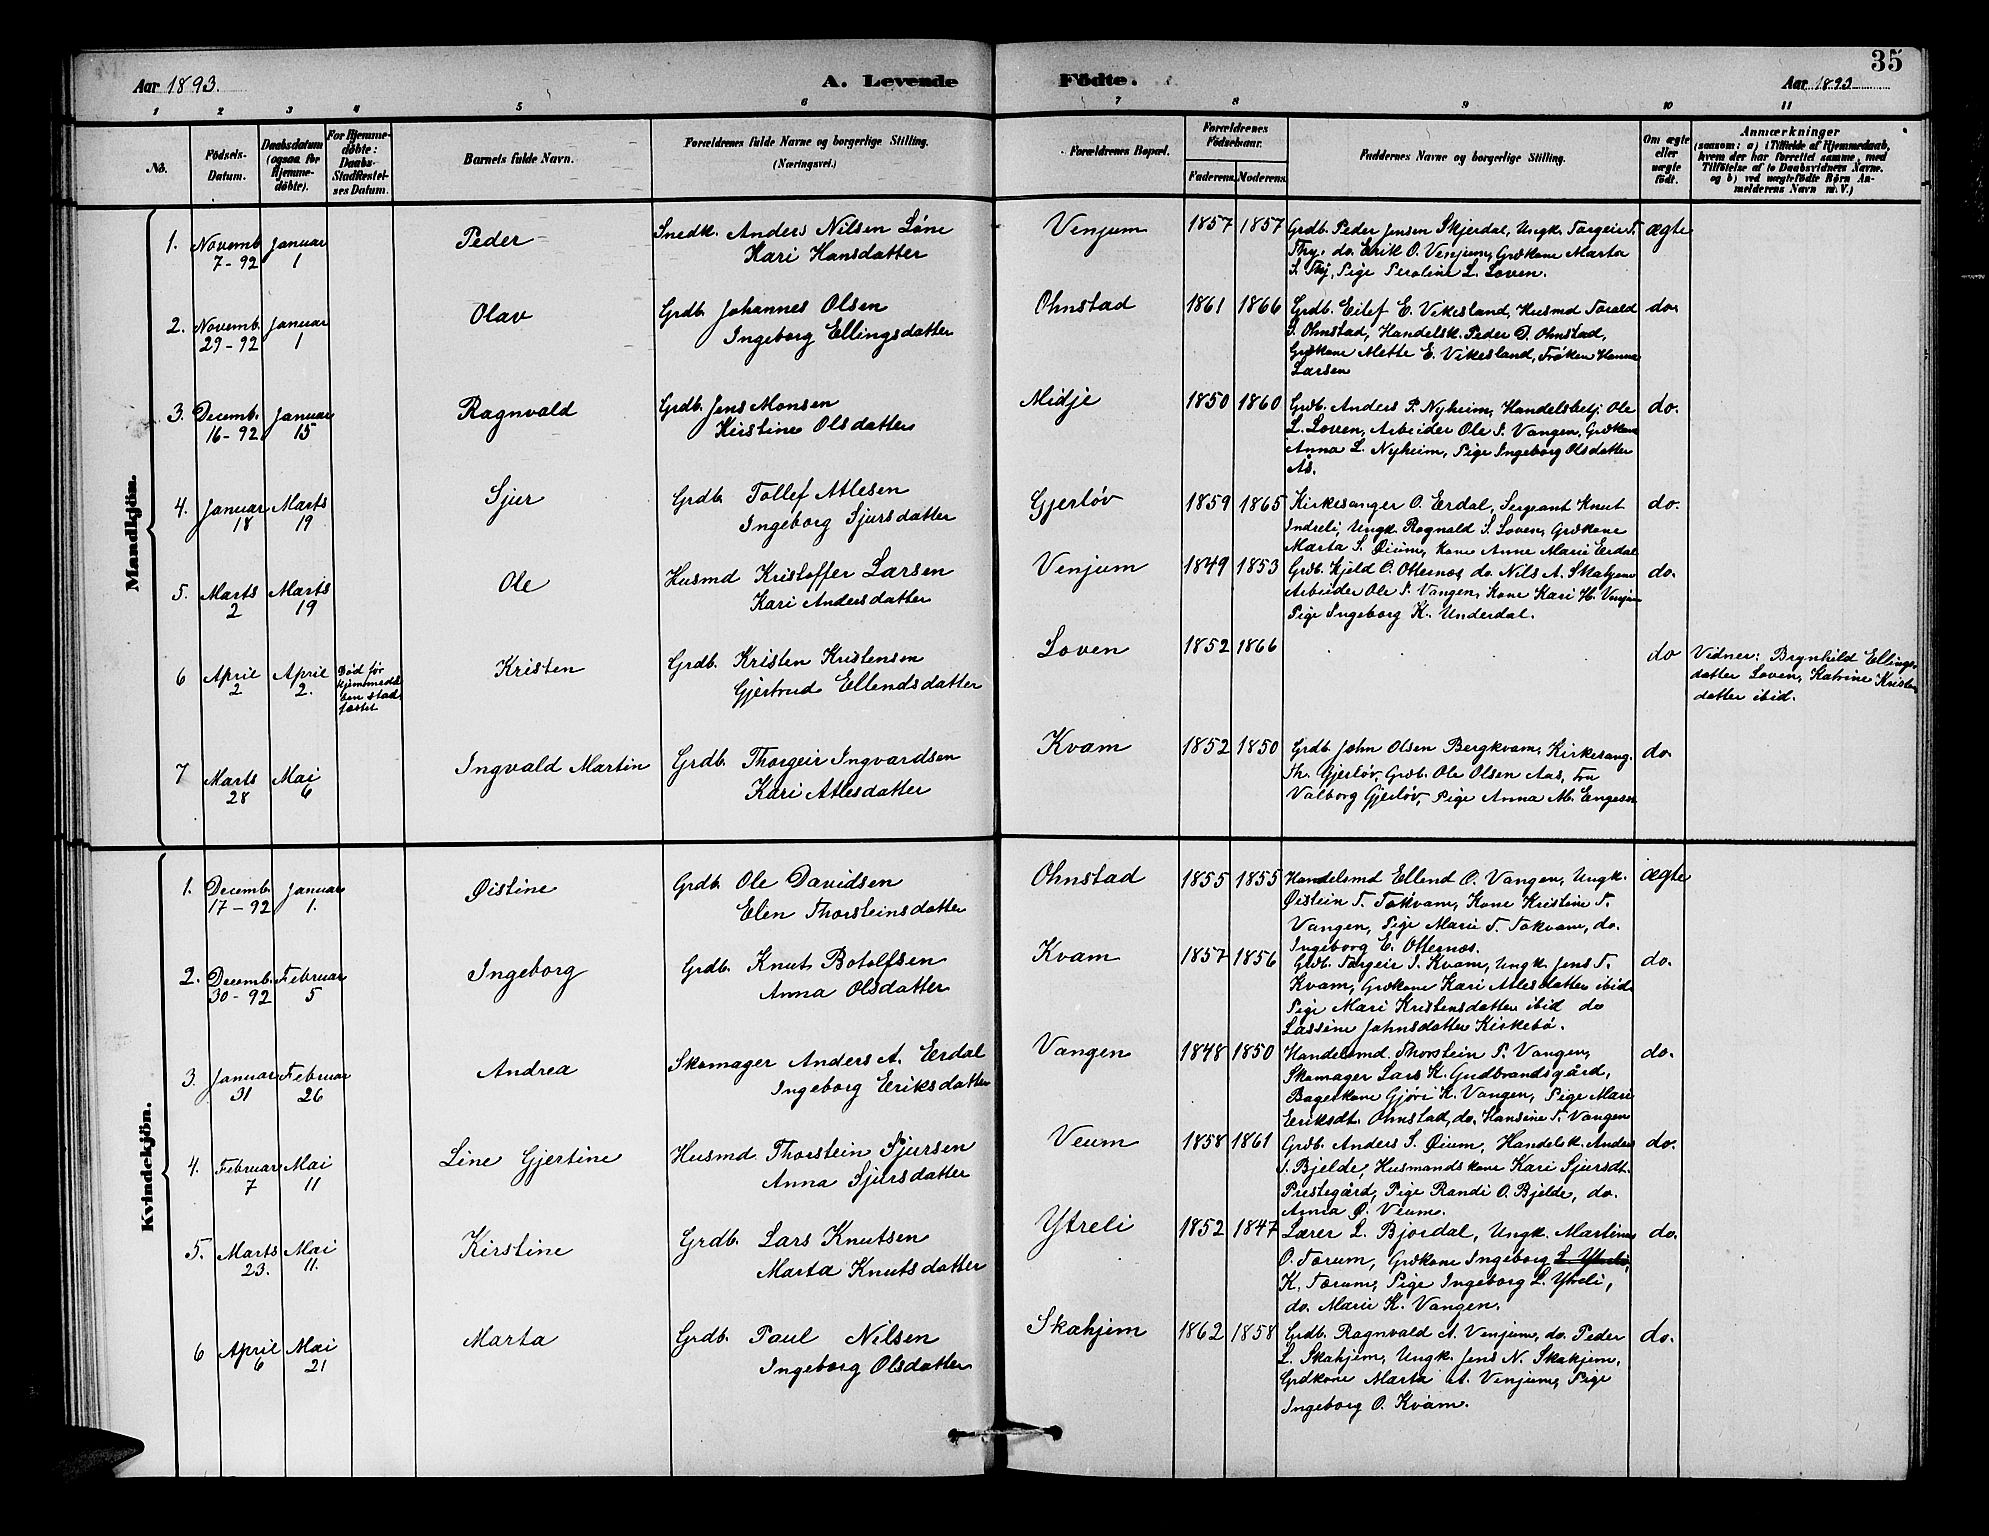 35
Aar 1893.
A. Levende
Födte.
Aar 1893
1 2 3 4 5 6 7 8 9 10 11
No.
Födsels-
Datum.
Daabsdatum
(ogsaa for
Hjemme-
döbte).
For Hjemme-
döbte:
Daabs-
Stadfæstel-
ses Datum.
Barnets fulde Navn.
Forældrenes fulde Navne og borgerlige Stilling.
(Næringsvei.)
Forældrenes Bopæl.
Forældrenes
Födselsaar.
Faderens. Moderens.
Faddernes Navne og borgerlige Stilling.
Om ægte
eller
uægte
födt.
Anmærkninger
(saasom: a) i Tilfælde af Hjemmedaab,
hvem der har forrettet samme, med
Tilföielse af to Daabsvidners Navne.
og b) ved uægtefödte Börn An-
melderens Navn m. V.)
Mandkjön.
1. Novemb. 7-92 Januar 1 Peder Snedk. Anders Nilsen Løne
Kari Hansdatter
Venjum 1857 1857 Grdb. Peder Jensen Skjerdal, Ungk. Torgeir T.
Thy, do. Erik O. Venjum, Grdkone Marta
S. Thy, Pige Peroline L. Loven.
ægte
2. Novemb. 29-92 Januar 1 Olav Grdb. Johannes Olsen
Ingeborg Ellingsdatter
Ohnstad 1861 1866 Grdb. Eilef E. Vikesland, Husmd Torald
S. Ohnstad, Handelsk. Peder D. Ohnstad,
Grdkone Mette E. Vikesland, Frøken Hanna
Larsen
do.
3. Decemb. 16-92 Januar 15 Ragnvald Grdb. Jens Monsen
Kirstine Olsdatter
Midje 1850 1860 Grdb. Anders P. Nyheim, Handelsbetj. Ole
L. Loven, Arbeider Ole S. Vangen, Grdkone
Anna L. Nyheim, Pige Ingeborg Olsdatter
Ås.
do.
4. Januar 18 Marts 19 Sjur Grdb. Tollef Atlesen
Ingeborg Sjursdatter
Gjerløv 1859 1865 Kirkesanger O. Erdal, Sergeant Knut
Indreli, Ungk. Ragnald S. Loven, Grdkone
Marta S. Øium, Kone Anne Marie Erdal
do.
5. Marts 2 Marts 19 Ole Husmd Kristoffer Larsen
Kari Andersdatter
Venjum 1849 1853 Grdb. Kjeld O. Otternes, do. Nils A. Skahjem
Arbeider Ole S. Vangen, Kone Kari H. Venjum
Pige Ingeborg K. Underdal.
do.
6 April 2 April 2. Død før
Hjemmedaa-
ben stad-
fæstet
Kristen Grdb. Kristen Kristensen
Gjertrud Ellendsdatter
Loven 1852 1866 do
Vidner: Brynhild Ellings-
datter Loven, Katrine Kristen
datter ibid.
7 Marts 28 Mai 6 Ingvald Martin Grdb. Thorgeir Ingvardsen
Kari Atlesdatter
Kvam 1852 1850 Grdb. John Olsen Bergkvam, Kirkesang.
Th. Gjerløv, Grdb. Ole Olsen Aas, Fru
Valborg Gjerløv, Pige Anna M. Engesen
do.
Kvindekjön.
1. Decemb. 17-92 Januar 1. Øistine Grdb. Ole Davidsen
Elen Thorsteinsdatter
Ohnstad 1855 1855 Handelsmd Ellend O. Vangen, Ungk.
Øistein T. Tokvam, Kone Kristine T.
Vangen, Pige Marie T. Tokvam, do.
Ingeborg E. Otternes.
ægte
2. Decemb. 30-92 Februar 5 Ingeborg Grdb. Knut Botolfsen
Anna Olsdatter
Kvam 1857 1856 Grdb. Torgeir I. Kvam, Ungk. Jens T.
Kvam, Grdkone Kari Atlesdatter ibid
Pige Mari Kristensdatter ibid do
Lassine Johnsdatter Kirkebö.
do.
3. Januar 31 Februar 26 Andrea Skomager Anders A. Erdal
Ingeborg Eriksdatter
Vangen 1848 1850 Handelsmd. Thorstein P. Vangen,
Skomager Lars K. Gudbrandsgård,
Bagerkone Gjøri K. Vangen, Pige Mari
Eriksdt. Ohnstad, do. Hansine T. Vangen
do.
4. Februar 7 Mai 11 Line Gjertine Husmd Thorstein Sjursen
Anna Sjursdatter
Veum 1858 1861 Grdb. Anders S. Øium, Handelsk. Anders
S. Bjelde, Husmandskone Kari Sjursdt.
Prestegård, Pige Randi O. Bjelde, do.
Anna O. Veum.
do.
5. Marts 23. Mai 11. Kirstine Grdb. Lars Knutsen
Marta Knutsdatter
Ytreli 1852 1847 Lærer L. Bjordal, Ungk. Martinus
O. Torum, Grdkone Ingeborg L. Ytreli,
K. Torum, Pige Ingeborg L. Ytreli,
do. Marie K. Vangen.
do.
6 April 6 Mai 21 Marta Grdb. Paul Nilsen
Ingeborg Olsdatter
Skahjem 1862 1858 Grdb. Ragnvald A. Venjum, do. Peder
L. Skahjem, Ungk. Jens N. Skahjem,
Grdkone Marta A. Venjum, Pige
Ingeborg O. Kvam.
do.